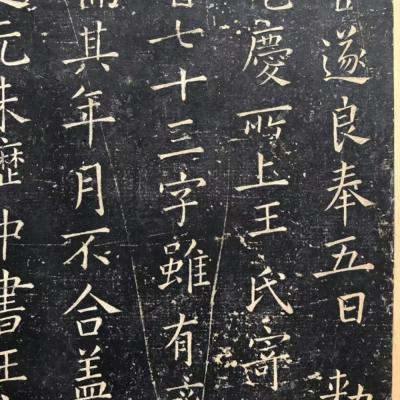 遂良奉五日勑
慶所上王氏寳
七十三字雖有
其年月不合盖
元珠歷中書王